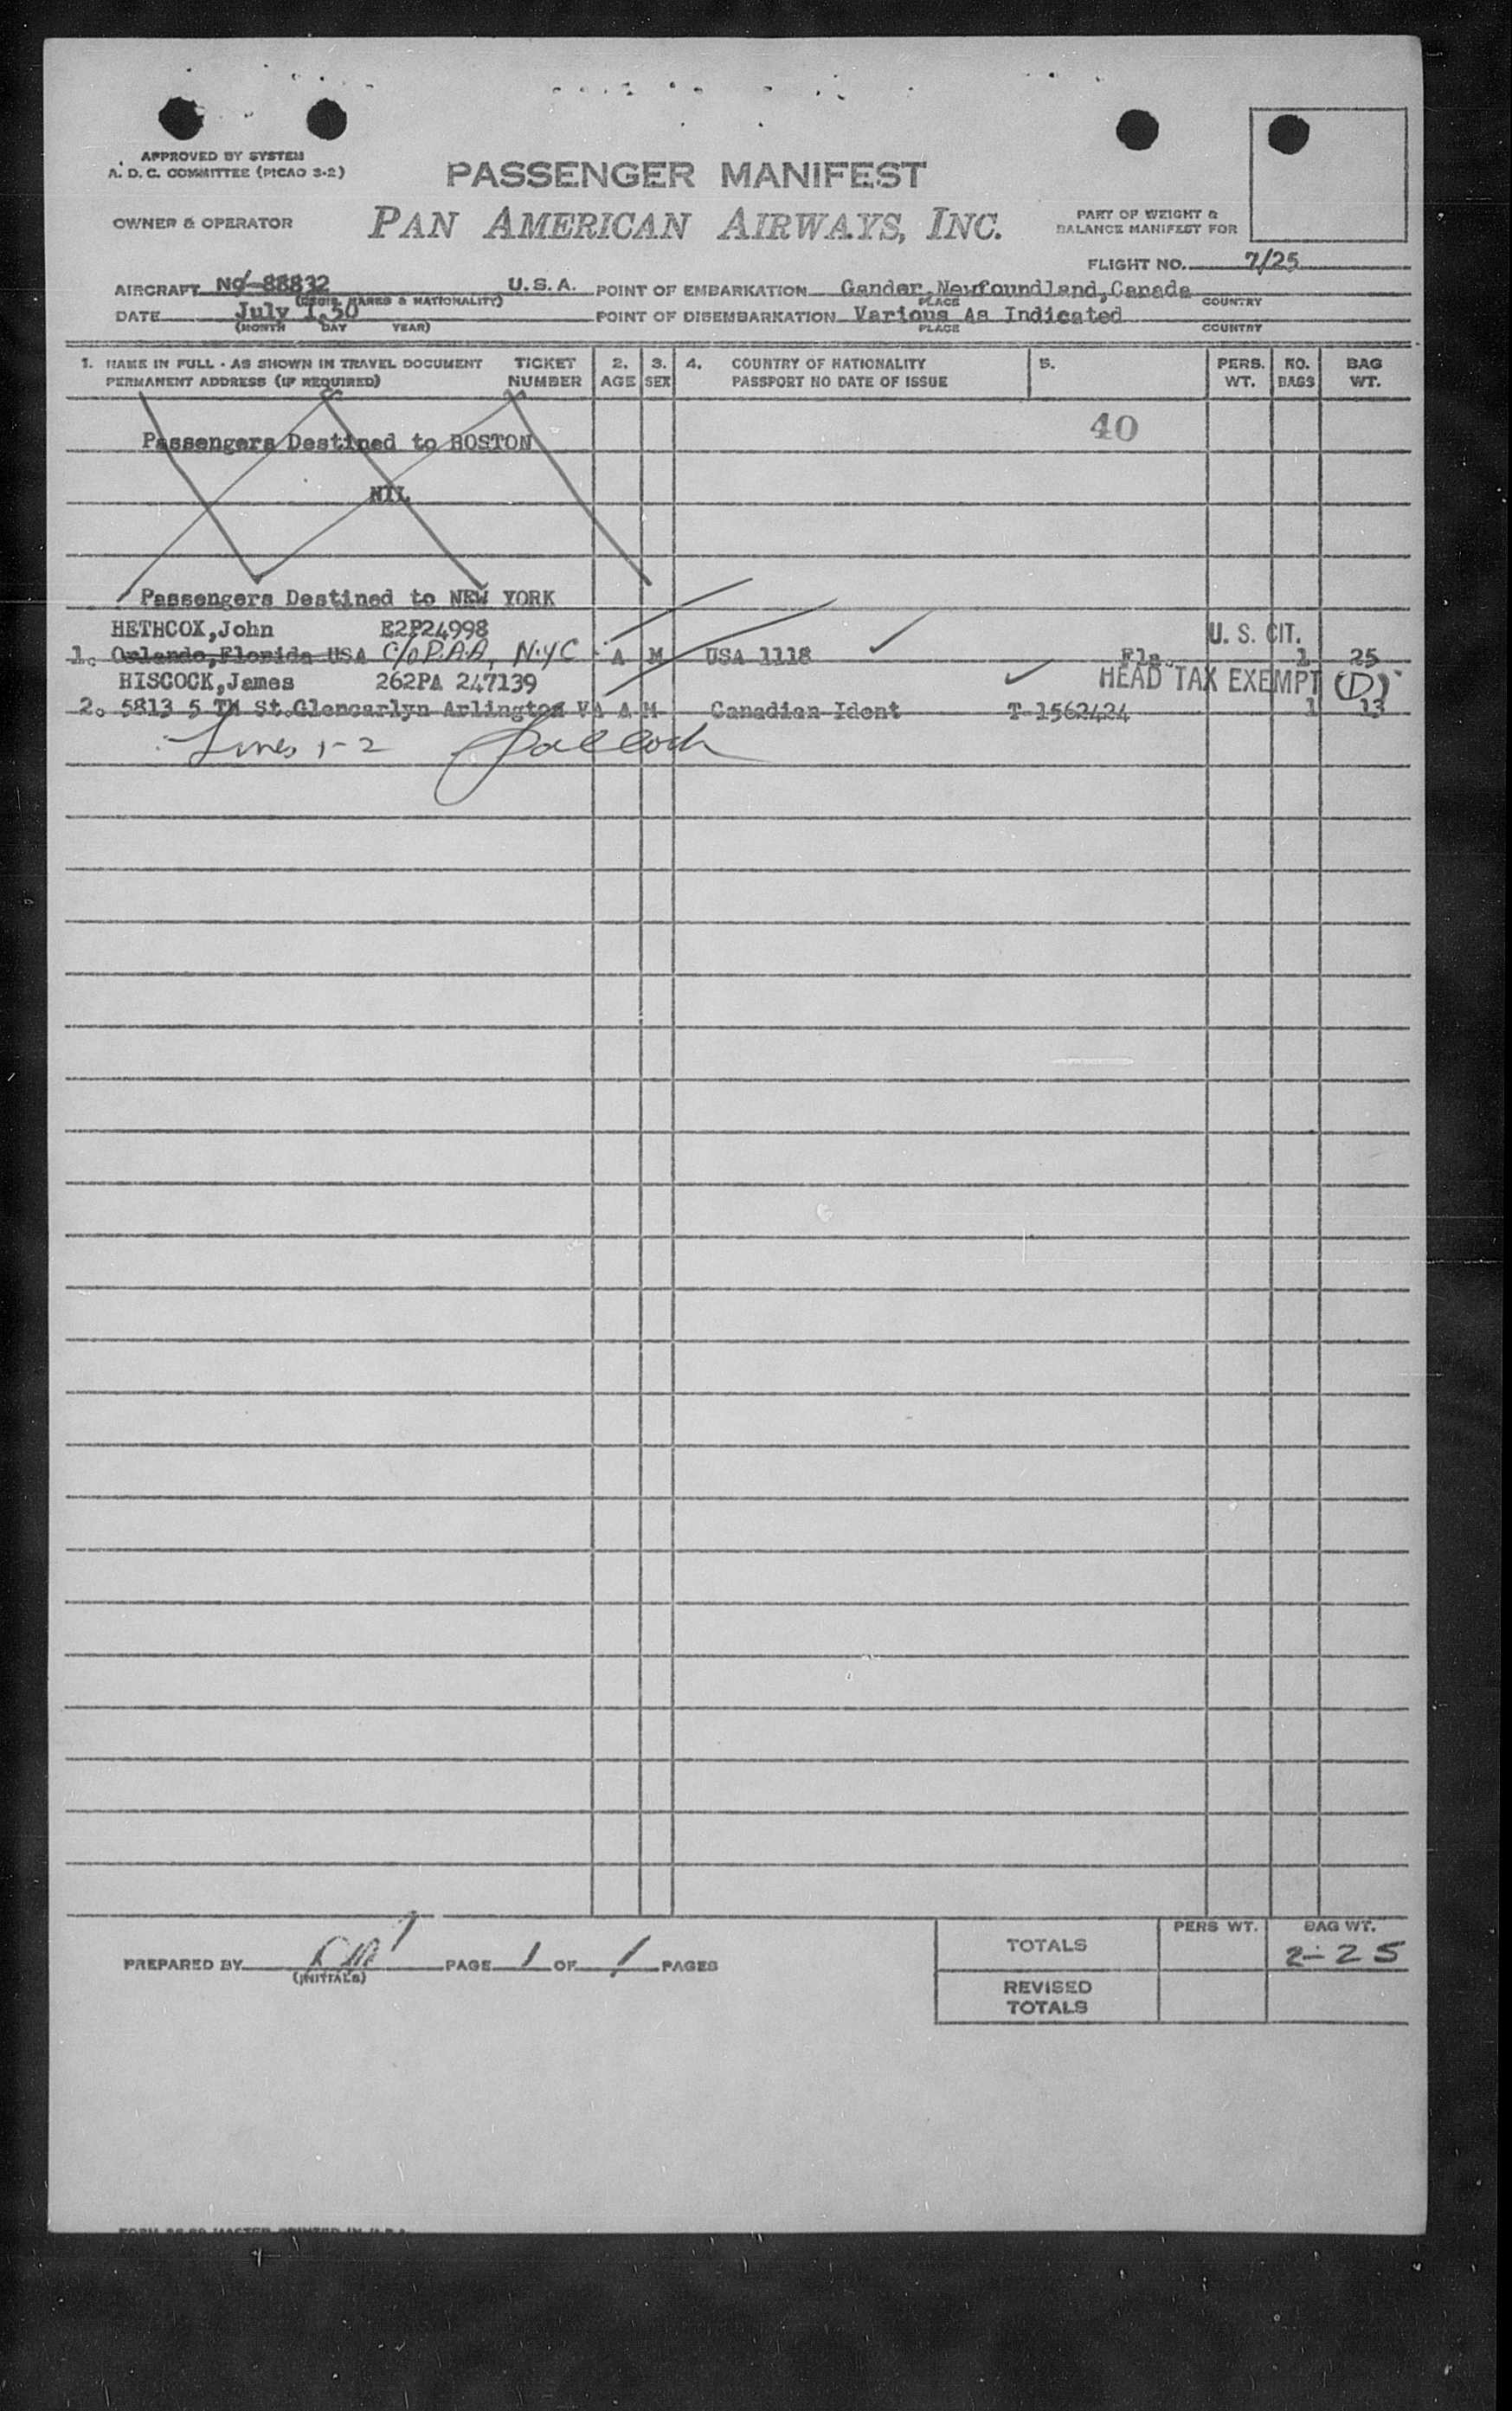 APPROVED BY SYSTEM
A. D. C. COMMITTEE (PICAO 3-2)
PASSENGER MANIFEST
OWNER & OPERATOR
PAN AMERICAN AIRWAYS, INC.
PART OF WEIGHT &
BALANCE MANIFEST FOR
FLIGHT NO. 7/25
AIRCRAFT NC-88832 U.S.A. POINT OF EMBARKATION Gander, Newfoundland, Canada
(REGIS. MARKS & NATIONALITY) PLACE COUNTRY
DATE July 1,50 POINT OF DISEMBARKATION Various As Indicated
(MONTH DAY YEAR) PLACE COUNTRY
1. NAME IN FULL - AS SHOWN IN TRAVEL DOCUMENT TICKET 2. 3. 4. COUNTRY OF NATIONALITY 5. PERS. NO. BAG
PERMANENT ADDRESS (IF REQUIRED) NUMBER AGE SEX PASSPORT NO DATE OF ISSUE WT. BAGS WT.
40
Passengers Destined to BOSTON
NIL
Passengers Destined to NEW YORK
HETHCOX,John E2P24998 U. S. CIT.
1. Orlando,Florida USA C/O P.A.A, N.Y.C A M USA 1118 Fla. 1 25
HISCOCK,James 262PA 247139 HEAD TAX EXEMPT (D)
2. 5813 5 TH St.Glencarlyn Arlington VA A M Canadian Ident T 1562424 1 13
Lines 1-2
PERS WT. BAG WT.
TOTALS 2-25
PREPARED BY PAGE 1 OF 1 PAGES
(INITIALS)
REVISED
TOTALS